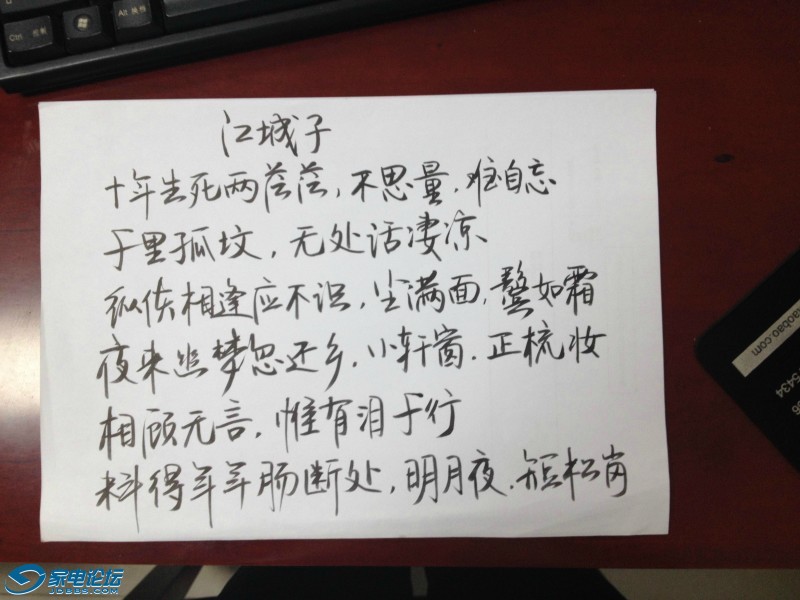 江城子
十年生死两茫茫，不思量，难自忘
千里孤坟，无处话凄凉
纵使相逢应不识，尘满面，鬓如霜
夜来幽梦忽还乡，小轩窗，正梳妆
相顾无言，惟有泪千行
料得年年肠断处，明月夜，短松岗
Ctrl
Alt 换档
aobao.com
5434
家电论坛
JDBBS.COM